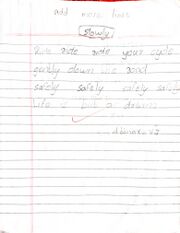 add more lines
slowly
Ride ride ride your cycle
gently down the road
safely safely safely safely
life is but a dream